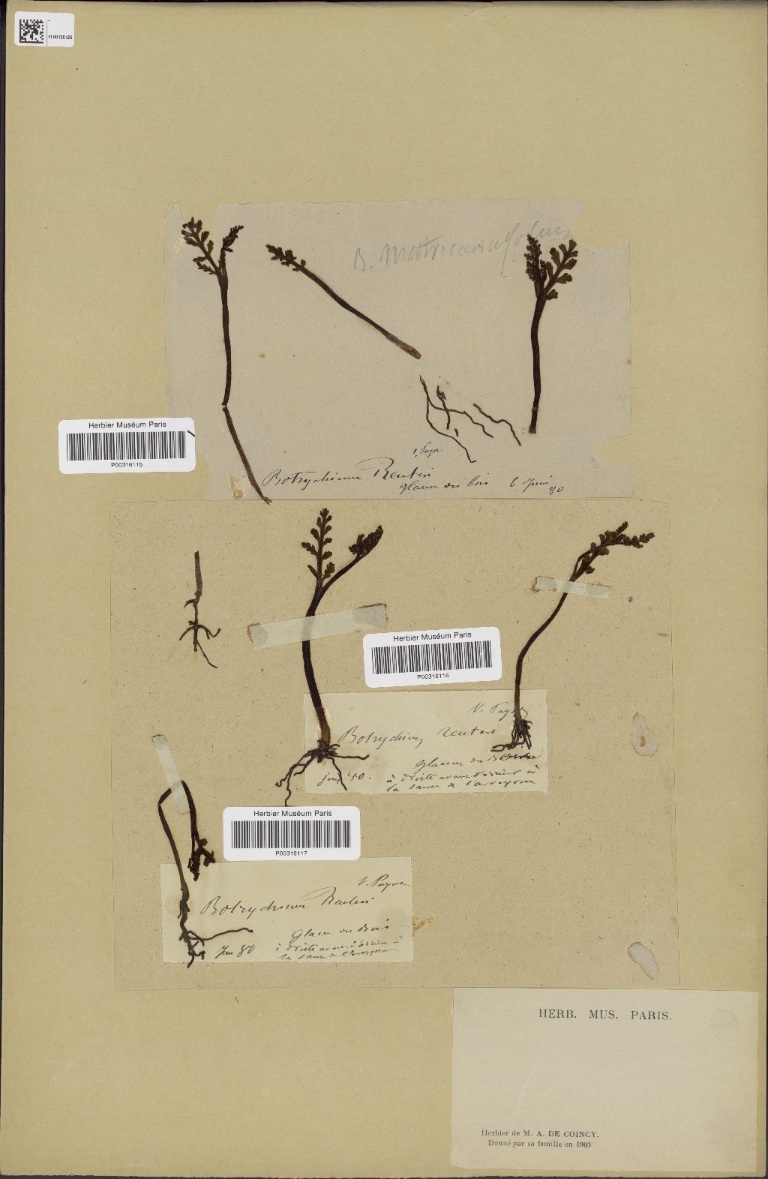 B. matricariaefolium
Herbier Muséum Paris
P00316115
V. Payot
Botrychium Reuteri
Glacier du bois 6 Juin 80
Herbier Muséum Paris
P00316116
V. Payot
Botrychium Reuteri
Glacier du Bois
juin 80. à droite avant d'arriver à
la source de l'arveyron
Herbier Muséum Paris
P00316117
V. Payot
Botrychium Reuteri
Glacier du Bois
Juin 80 à droite avant d'arriver à
la source de l'arveyron
HERB. MUS. PARIS.
Herbier de M. A. DE COINCY.
Donné par sa famille en 1903